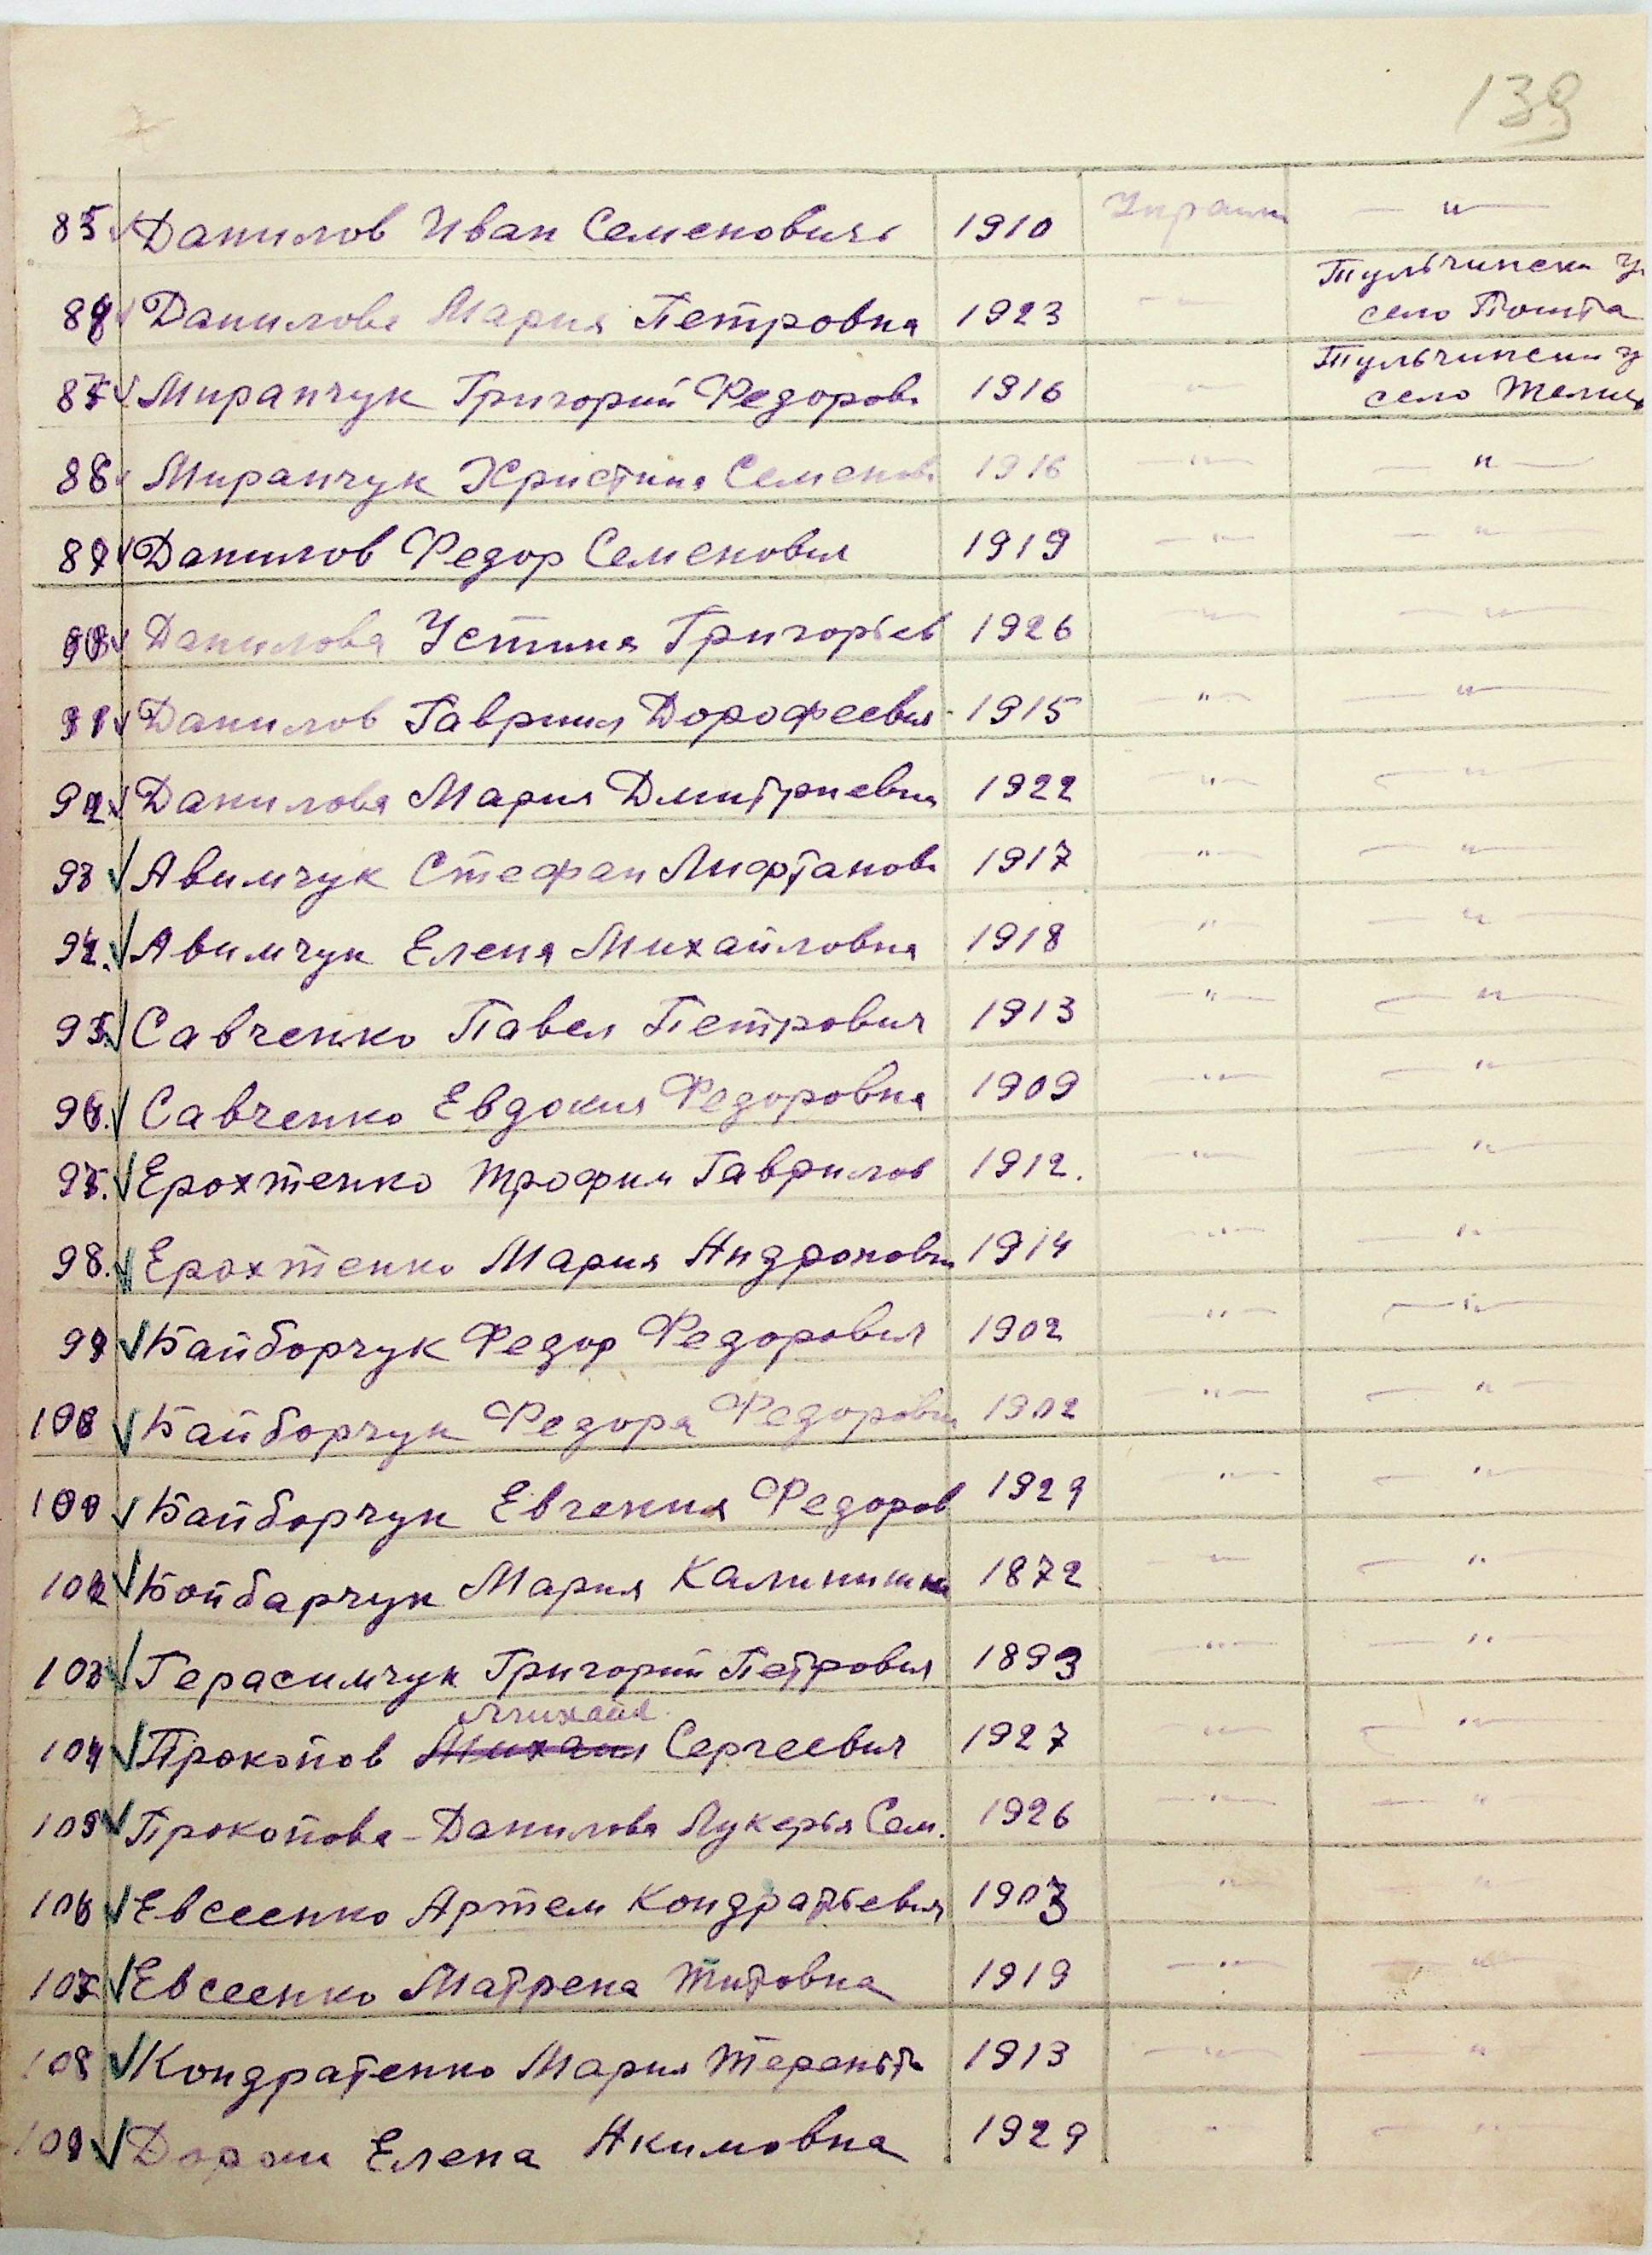 139
85 Данилов Иван Семенович 1910 Украин — " —
Тульчински у
86 Данилова Мария Петровна 1923 — " — село Пошта
Тульчински у
87 Миранчук Григорий Федоров 1916 — " — село
88 Миранчук Христина Семенов 1916 — " — — " —
89 Данилов Федор Семенович 1919 — " — — " —
90 Данилова Устина Григорьев 1926 — " — — " —
91 Данилов Гавриил Дорофеевич 1915 — " — — " —
92 Данилова Мария Дмитриевна 1922 — " — — " —
93 Авимчук Стефан 1917 — " — — " —
94. Авимчук Елена Михайловна 1918 — " — — " —
95. Савченко Павел Петрович 1913 — " — — " —
96. Савченко Евдокия Федоровна 1909 — " — — " —
97. Ерохтенко Трофим Гаврилов 1912. — " — — " —
98. Ерохтенко Мария Андроновн 1914 — " — — " —
99 Байборчук Федор Федорович 1902 — " — — " —
100 Байборчук Федора Федоровн 1902 — " — — " —
101 Байборчук Евгения Федоров 1929 — " — — " —
102 Бойбарчук Мария 1872 — " — — " —
103 Герасимчук Григорий Петрович 1893 — " — — " —
Михаил
104 Прокопов Михаил Сергеевич 1927 — " — — " —
105 Прокопова-Данилова Лукерья Сем. 1926 — " — — " —
106 Евсеенко Артем Кондратьевич 1903 — " — — " —
107 Евсеенко Матрена Титовна 1919 — " — — " —
108 Кондратенко Мария Терентьев 1913 — " — — " —
109 Елена Акимовна 1929 — " — — " —